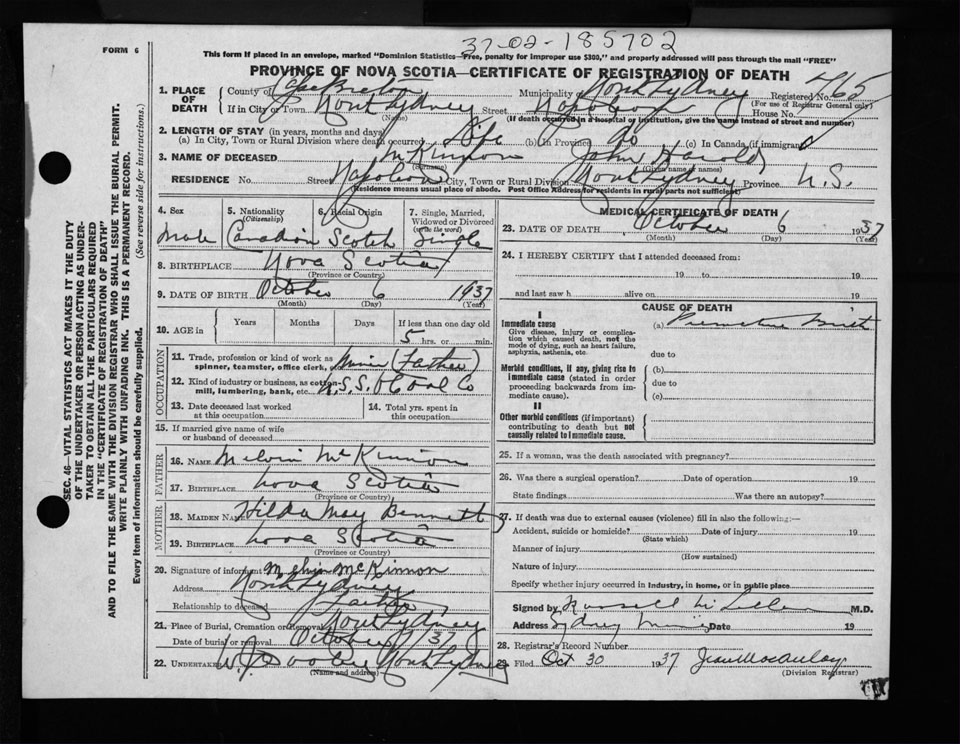 37-02-185702
FORM 6
This form if placed in an envelope, marked "Dominion Statistics—Free, penalty for improper use $300," and properly addressed will pass through the mail "FREE"
PROVINCE OF NOVA SCOTIA—CERTIFICATE OF REGISTRATION OF DEATH
1. PLACE OF DEATH
County of Cape Breton Municipality of North Sydney Registered No. 765
(For use of Registrar General only)
If in City or Town North Sydney Street Napoleon House No.
(Name) (If death occurred in a hospital or institution, give the name instead of street and number)
2. LENGTH OF STAY (in years, months and days)
(a) In City, Town or Rural Division where death occurred Life (b) In Province do (c) In Canada (if immigrant)
3. NAME OF DECEASED McKinnon John Harold
(Surname) (Given name or names)
RESIDENCE No. Street Napoleon City, Town or Rural Division North Sydney Province N.S.
(Residence means usual place of abode. Post Office Address for residents in rural parts not sufficient)
4. Sex 5. Nationality (Citizenship) 6. Racial Origin 7. Single, Married, Widowed or Divorced (write the word)
Male Canadian Scotch Single
8. BIRTHPLACE Nova Scotia
(Province or Country)
9. DATE OF BIRTH October 6 1937
(Month) (Day) (Year)
10. AGE in Years Months Days If less than one day old
5 hrs. or min.
OCCUPATION
11. Trade, profession or kind of work as spinner, teamster, office clerk, (Father)
12. Kind of industry or business, as cotton-mill, lumbering, bank, etc. N.S.S. & Coal Co
13. Date deceased last worked at this occupation
14. Total yrs. spent in this occupation
15. If married give name of wife or husband of deceased
FATHER
16. NAME Melvin McKinnon
17. BIRTHPLACE Nova Scotia
(Province or Country)
MOTHER
18. MAIDEN NAME Hilda May Bennett
19. BIRTHPLACE Nova Scotia
(Province or Country)
20. Signature of informant Melvin McKinnon
Address North Sydney
Relationship to deceased Father
21. Place of Burial, Cremation or Removal North Sydney
Date of burial or removal October 37
22. UNDERTAKER North Sydney
(Name and address)
MEDICAL CERTIFICATE OF DEATH
23. DATE OF DEATH October 6 1937
(Month) (Day) (Year)
24. I HEREBY CERTIFY that I attended deceased from:
19 to 19
and last saw h alive on 19
CAUSE OF DEATH
I
Immediate cause (a) Premature Birth
Give disease, injury or complication which caused death, not the mode of dying, such as heart failure, asphyxia, asthenia, etc.
due to
Morbid conditions, if any, giving rise to immediate cause (stated in order proceeding backwards from immediate cause).
(b)
due to
(c)
II
Other morbid conditions (if important) contributing to death but not causally related to immediate cause.
25. If a woman, was the death associated with pregnancy?
26. Was there a surgical operation? Date of operation 19
State findings Was there an autopsy?
27. If death was due to external causes (violence) fill in also the following:—
Accident, suicide or homicide? Date of injury 19
(State which)
Manner of injury
(How sustained)
Nature of injury
Specify whether injury occurred in industry, in home, or in public place
Signed by Russell M.D.
Address Sydney Mines Date 19
28. Registrar's Record Number
Filed Oct 30 1937 Jean Macaulay
(Division Registrar)
SEC. 46—VITAL STATISTICS ACT MAKES IT THE DUTY
OF THE UNDERTAKER OR PERSON ACTING AS UNDER-
TAKER TO OBTAIN ALL THE PARTICULARS REQUIRED
IN THE "CERTIFICATE OF REGISTRATION OF DEATH"
AND TO FILE THE SAME WITH THE DIVISION REGISTRAR WHO SHALL ISSUE THE BURIAL PERMIT.
WRITE PLAINLY WITH UNFADING INK. THIS IS A PERMANENT RECORD.
Every item of information should be carefully supplied. (See reverse side for instructions.)